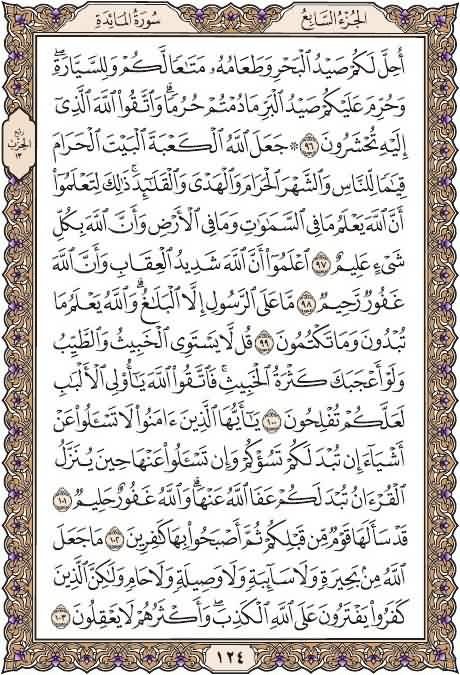 الجزء السابع سورة المائدة
أُحِلَّ لَكُمْ صَيْدُ ٱلْبَحْرِ وَطَعَامُهُۥ مَتَـٰعًا لَّكُمْ وَلِلسَّيَّارَةِ ۖ
وَحُرِّمَ عَلَيْكُمْ صَيْدُ ٱلْبَرِّ مَا دُمْتُمْ حُرُمًا ۗ وَٱتَّقُوا۟ ٱللَّهَ ٱلَّذِىٓ
إِلَيْهِ تُحْشَرُونَ ٩٦ ۞ جَعَلَ ٱللَّهُ ٱلْكَعْبَةَ ٱلْبَيْتَ ٱلْحَرَامَ
ربع
الحزب
١٣
قِيَـٰمًا لِّلنَّاسِ وَٱلشَّهْرَ ٱلْحَرَامَ وَٱلْهَدْىَ وَٱلْقَلَـٰٓئِدَ ۚ ذَٰلِكَ لِتَعْلَمُوٓا۟
أَنَّ ٱللَّهَ يَعْلَمُ مَا فِى ٱلسَّمَـٰوَٰتِ وَمَا فِى ٱلْأَرْضِ وَأَنَّ ٱللَّهَ بِكُلِّ
شَىْءٍ عَلِيمٌ ٩٧ ٱعْلَمُوٓا۟ أَنَّ ٱللَّهَ شَدِيدُ ٱلْعِقَابِ وَأَنَّ ٱللَّهَ
غَفُورٌ رَّحِيمٌ ٩٨ مَّا عَلَى ٱلرَّسُولِ إِلَّا ٱلْبَلَـٰغُ ۗ وَٱللَّهُ يَعْلَمُ مَا
تُبْدُونَ وَمَا تَكْتُمُونَ ٩٩ قُل لَّا يَسْتَوِى ٱلْخَبِيثُ وَٱلطَّيِّبُ
وَلَوْ أَعْجَبَكَ كَثْرَةُ ٱلْخَبِيثِ ۚ فَٱتَّقُوا۟ ٱللَّهَ يَـٰٓأُو۟لِى ٱلْأَلْبَـٰبِ
لَعَلَّكُمْ تُفْلِحُونَ ١٠٠ يَـٰٓأَيُّهَا ٱلَّذِينَ ءَامَنُوا۟ لَا تَسْـَٔلُوا۟ عَنْ
أَشْيَآءَ إِن تُبْدَ لَكُمْ تَسُؤْكُمْ وَإِن تَسْـَٔلُوا۟ عَنْهَا حِينَ يُنَزَّلُ
ٱلْقُرْءَانُ تُبْدَ لَكُمْ عَفَا ٱللَّهُ عَنْهَا ۗ وَٱللَّهُ غَفُورٌ حَلِيمٌ ١٠١
قَدْ سَأَلَهَا قَوْمٌ مِّن قَبْلِكُمْ ثُمَّ أَصْبَحُوا۟ بِهَا كَـٰفِرِينَ ١٠٢ مَا جَعَلَ
ٱللَّهُ مِنۢ بَحِيرَةٍ وَلَا سَآئِبَةٍ وَلَا وَصِيلَةٍ وَلَا حَامٍ ۙ وَلَـٰكِنَّ ٱلَّذِينَ
كَفَرُوا۟ يَفْتَرُونَ عَلَى ٱللَّهِ ٱلْكَذِبَ ۖ وَأَكْثَرُهُمْ لَا يَعْقِلُونَ ١٠٣
١٢٤